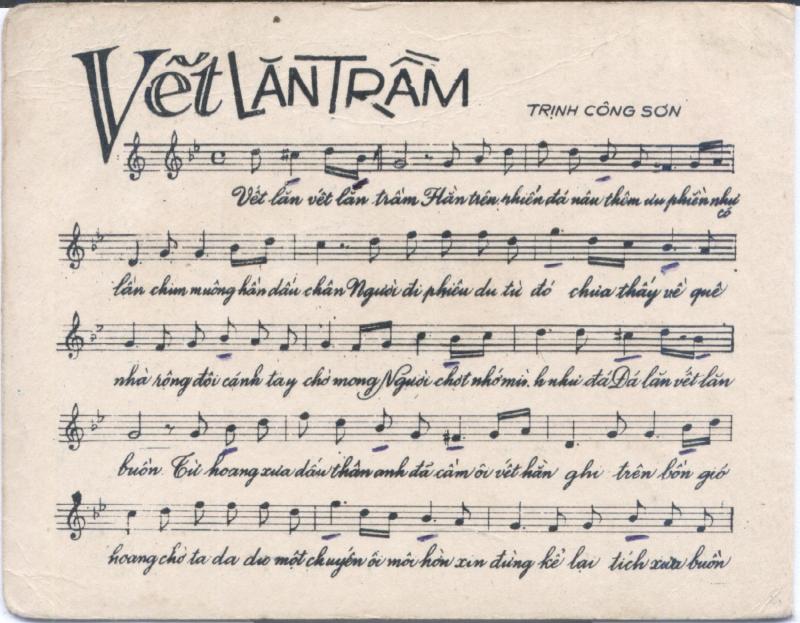 Vết LĂN TRẦM
TRỊNH CÔNG SƠN
Vết lăn vết lăn trầm Hằn trên phiến đá nâu thêm ưu phiền như có
lần chim muông hằn dấu chân Người đi phiêu du từ đó chưa thấy về quê
nhà rộng đôi cánh tay chờ mong Người chợt nhớ mình như đá Đá lăn vết lăn
buồn Từ hoang xưa dấu thân anh đã cầm ôi vết hằn ghi trên bốn gió
hoang chờ ta da dư một chuyến ôi môi hồn xin đừng kể lại tích xưa buồn